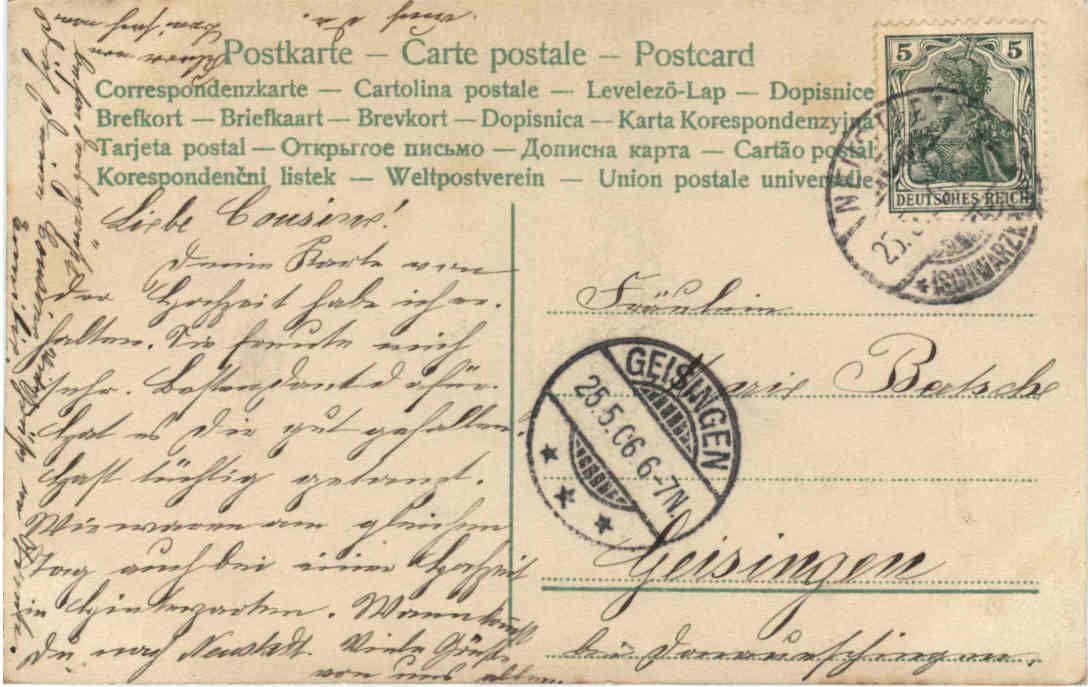 Postkarte – Carte postale – Postcard
Correspondenzkarte – Cartolina postale – Levelező-Lap – Dopisnice
Brefkort – Briefkaart – Brevkort – Dopisnica – Karta Korespondenzyjna
Tarjeta postal – Открыгое письмо – Дописна карта – Cartão postal
Korespondenční listek – Weltpostverein – Union postale universelle
5 5
DEUTSCHES REICH
NEUSTADT
25.5.
(SCHWARZW
Liebe Cousine!
Deine Karte von
der Hochzeit habe ich er-
halten. Sie freute mich
sehr. Besten Dank dafür.
Hat es Dir gut gefallen,
Hast tüchtig getanzt.
Wir waren am gleichen
Tag auch bei einer Hochzeit
in Hinterzarten. Wann kommst
Du nach Neustadt. Viele Grüße
von uns allen.
Fräulein
Marie Bertsche
GEISINGEN
25.5.06 6-7N.
Geisingen
bei Donaueschingen.